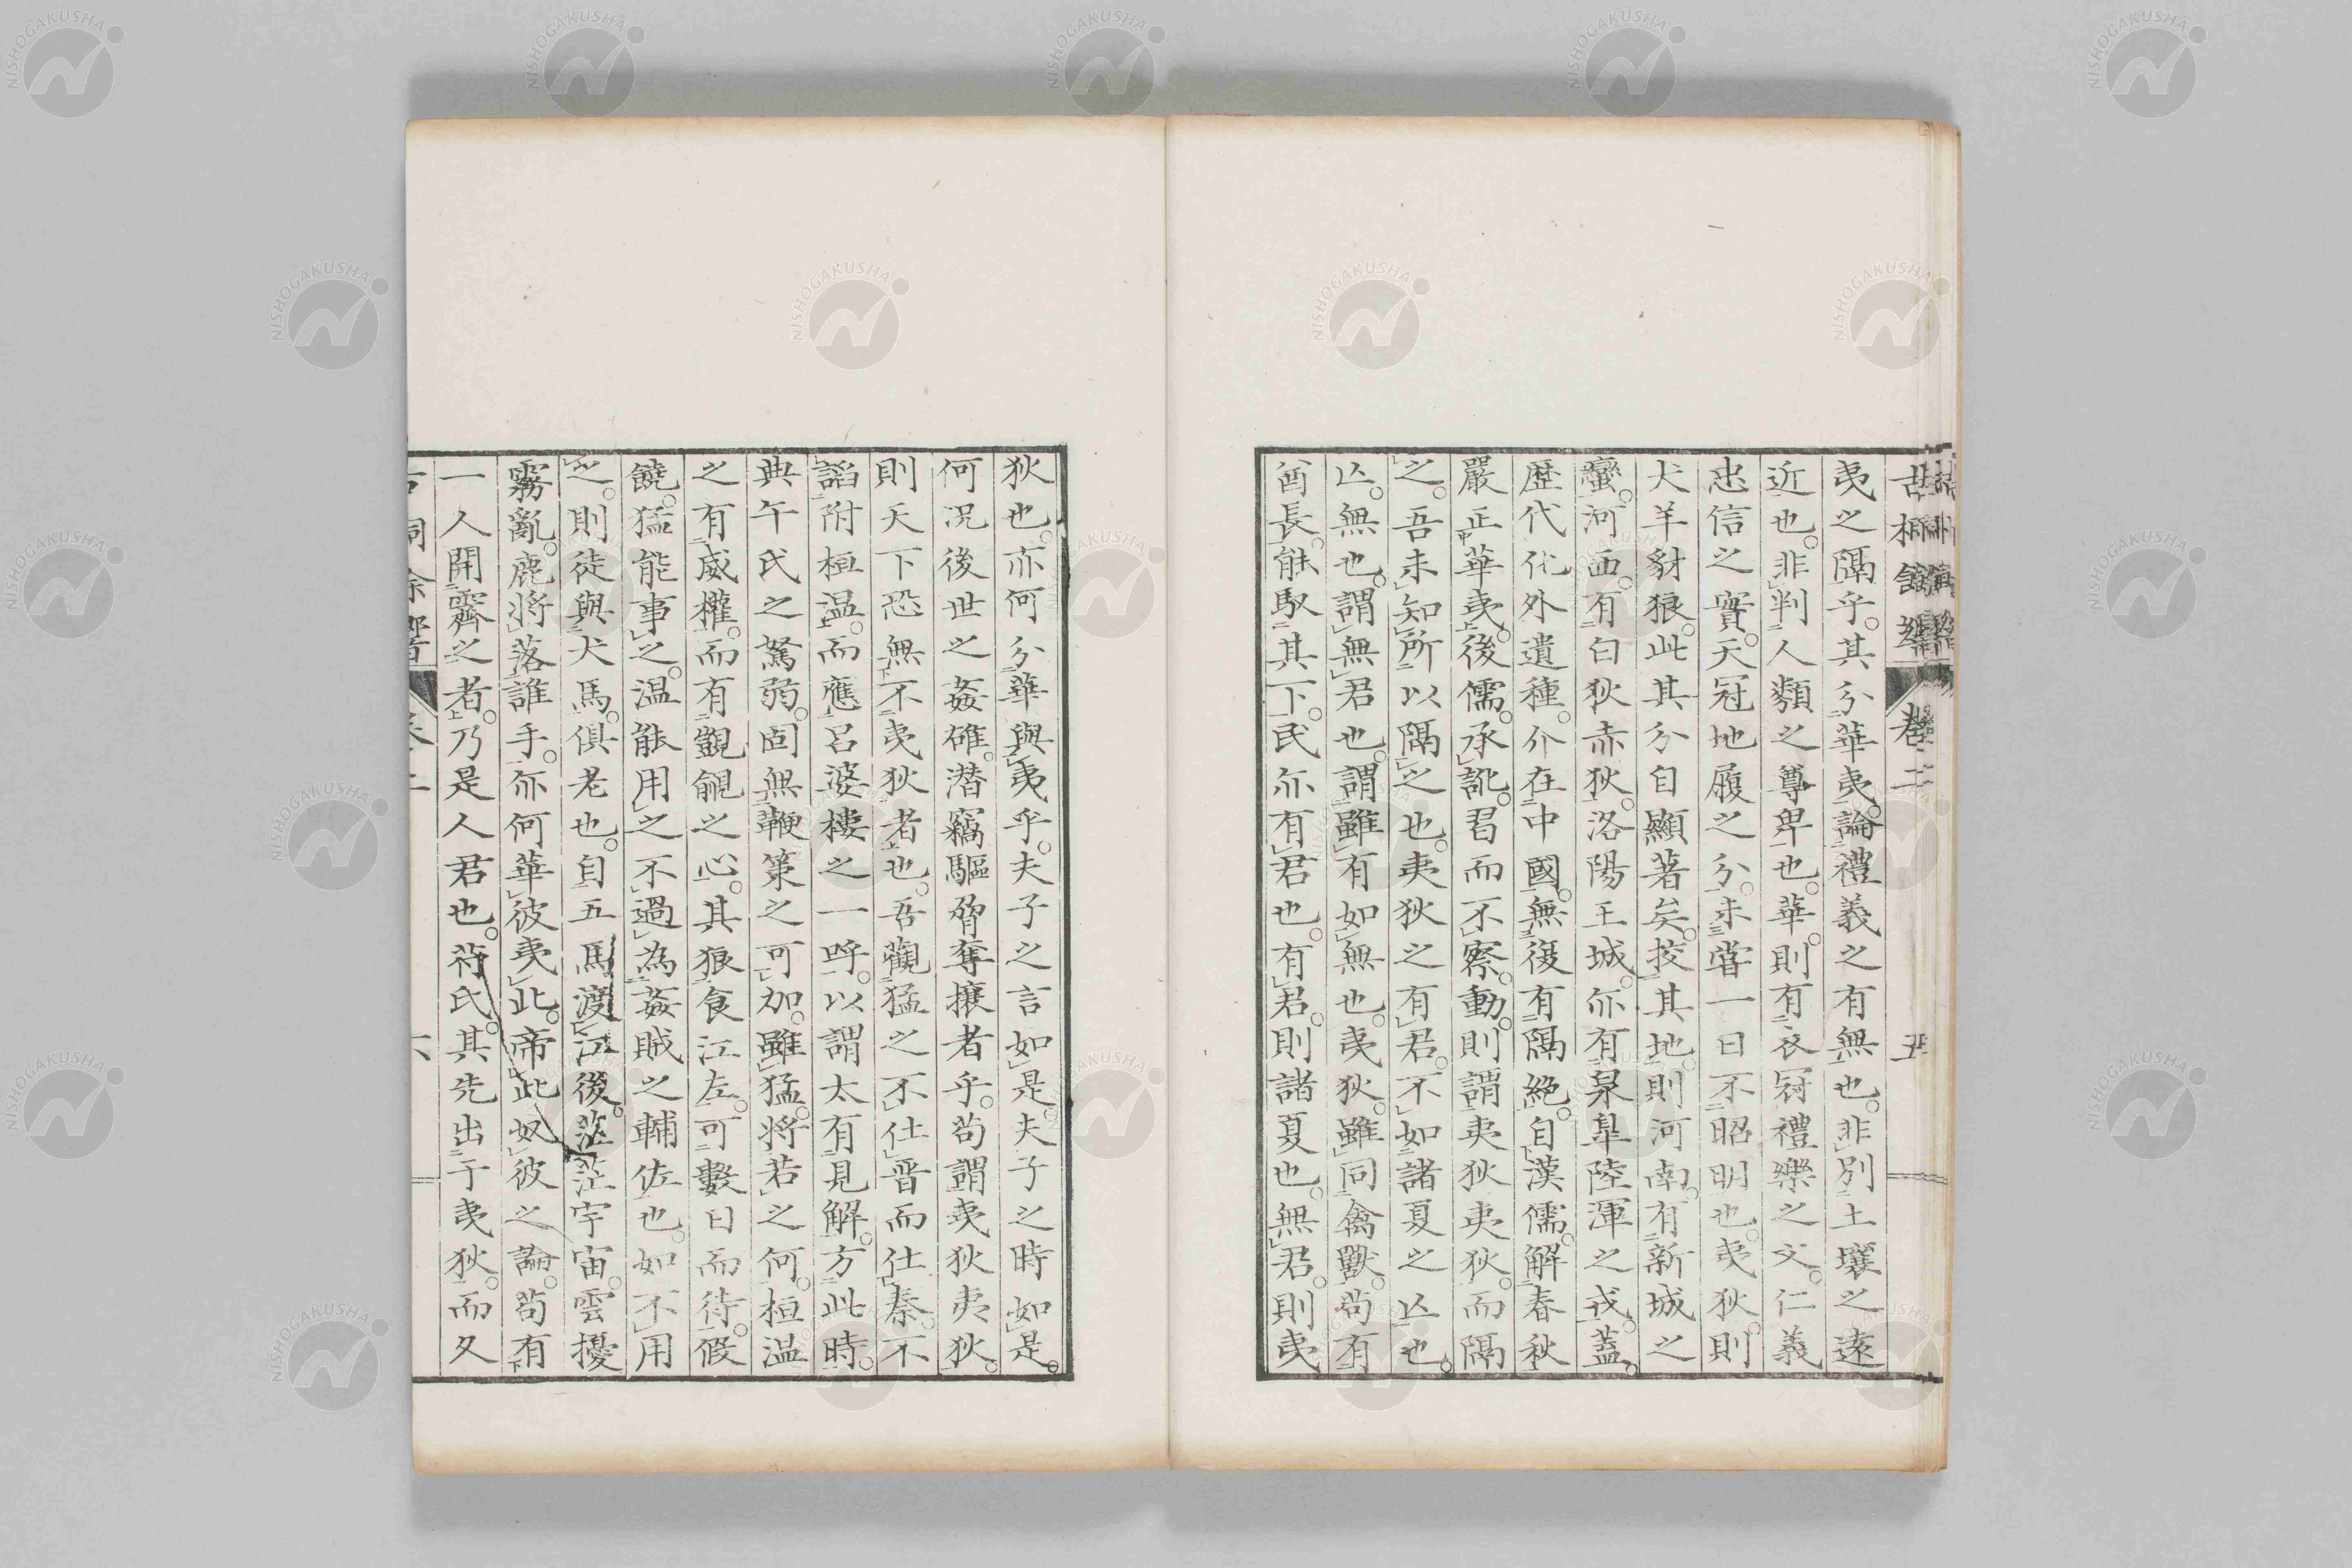 夷之隔乎。其分華夷。論禮義之有無也。非別土壤之遠
近也。非判人類之尊卑也。華則有衣冠禮樂之文。仁義
忠信之實。天冠地履之分。未嘗一日不昭明也。夷狄則
犬羊豺狼。此其分自顯著矣。按其地。則河南有新城之
蠻。河西。有白狄赤狄。洛陽王城。亦有泉皐陸渾之戎。蓋
歷代化外遺種。介在中國。無復有隔絕。自漢儒。解春秋
嚴正華夷。後儒。承訛。習而不察。動則謂夷狄夷狄。而隔
之。吾未知所以隔之也。夷狄之有君。不如諸夏之亾也。
亾。無也。謂無君也。謂雖有如無也。夷狄。雖同禽獸。苟有
酋長。能馭其下。民亦有君也。有君。則諸夏也。無君。則夷
狄也。亦何分華與夷乎。夫子之言如是。夫子之時如是。
何況後世之姦確。潜竊驅脅奪攘者乎。苟謂夷狄夷狄。
則天下恐無不夷狄者也。吾觀猛之不仕晋而仕秦。不
謟附桓温。而應呂婆樓之一呼。以謂太有見解。方此時。
典午氏之駑弱。固無鞭策之可加。雖猛。將若之何。桓温
之有威權。而有覬覦之心。其狼食江左。可數日而待。假
饒。猛能事之。温能用之不過為姦賊之輔佐也。如不用
之。則徒與犬馬。俱老也。自五馬渡江後。茫茫宇宙。雲擾
霧亂。鹿將落誰手。亦何華彼夷此。帝此奴彼之論。苟有
一人開霽之者。乃是人君也。苻氏。其先出于夷狄。而久
卷二
五